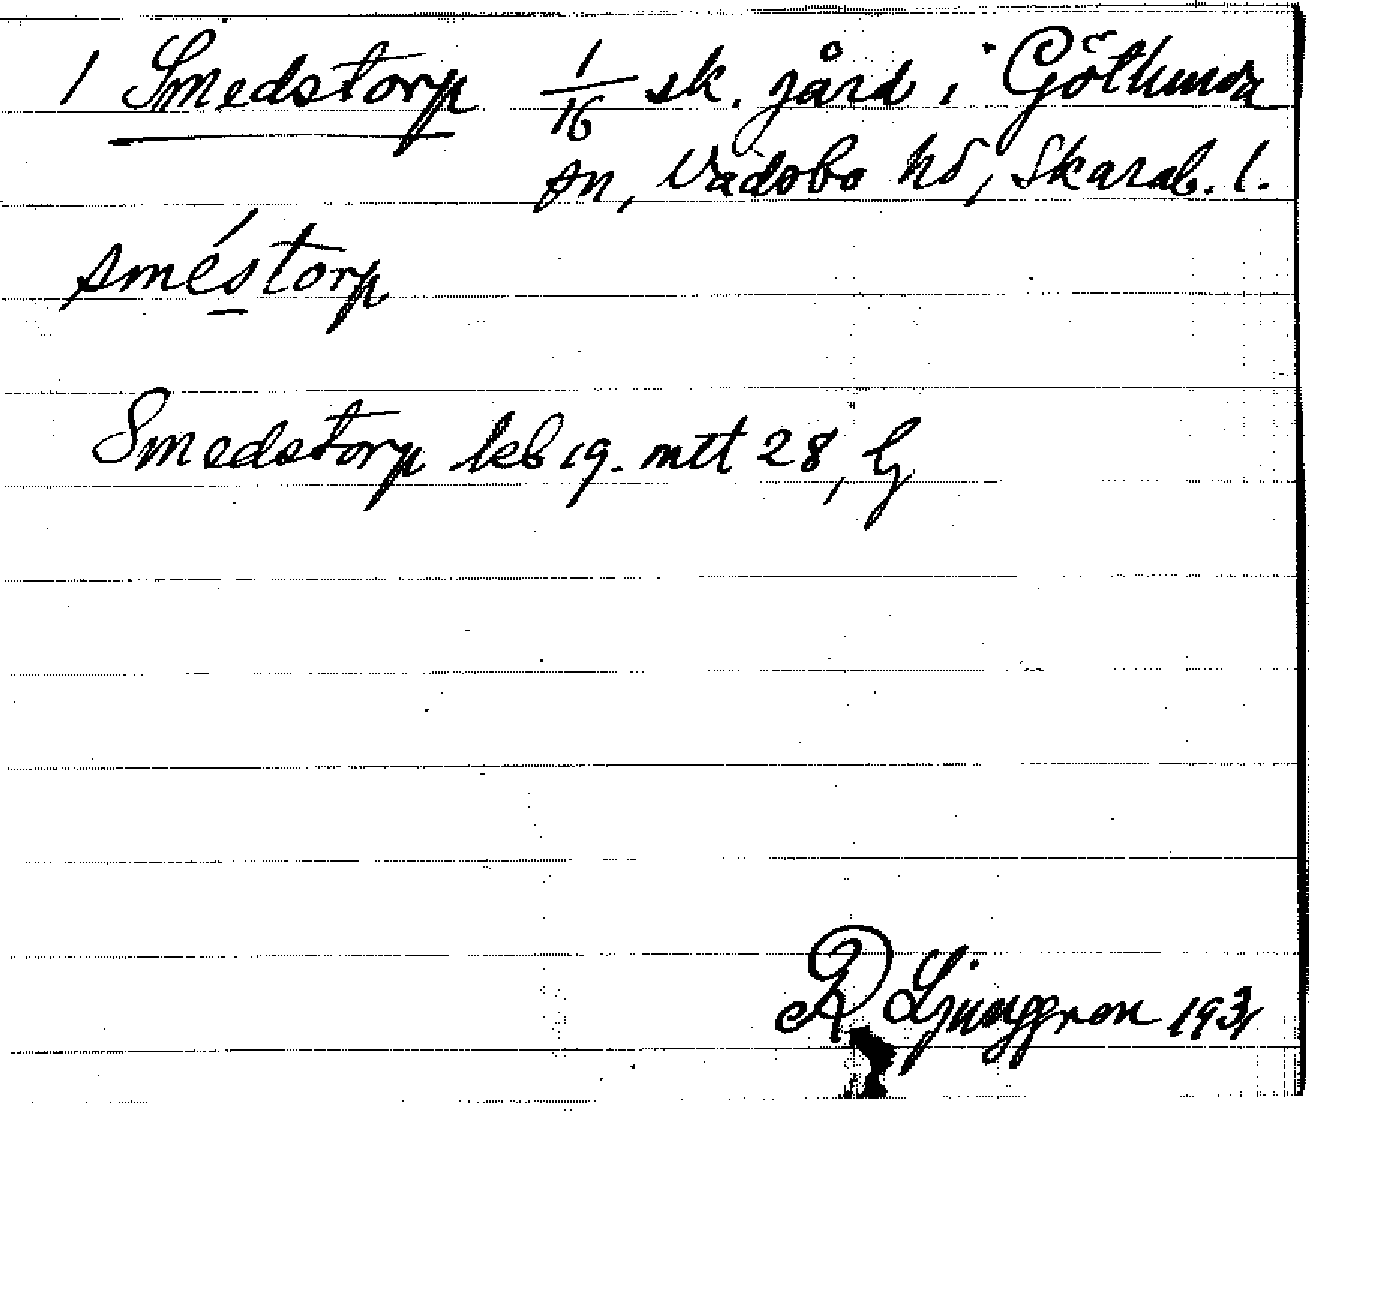 1 Smedstorp 1/16 sk. gård i Götlunda
sn, Vadsbo hd, Skarab. l.
sméstorp
Smedstorp kb 19. mtt 28, lj
R Ljunggren 1931